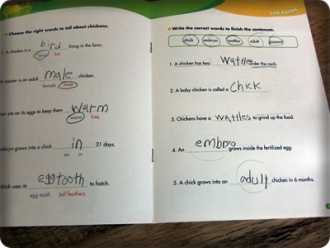 Choose the right words to tell about chickens.
1. A chicken is a bird living in the farm.
bird fun
rooster is an adult male chicken.
female male
sits on its eggs to keep them warm
warm free
embryo grows into a chick in 21 days.
in
chick uses its eggtooth to hatch.
egg tooth tail feathers
Life Cycles
Write the correct words to finish the sentences.
chick embryo wattles adult
1. A chicken has two wattles under the neck.
2. A baby chicken is called a chick
3. Chickens have a wattles to grind up the food.
4. An embryo grows inside the fertilized egg.
5. A chick grows into an adult chicken in 6 months.